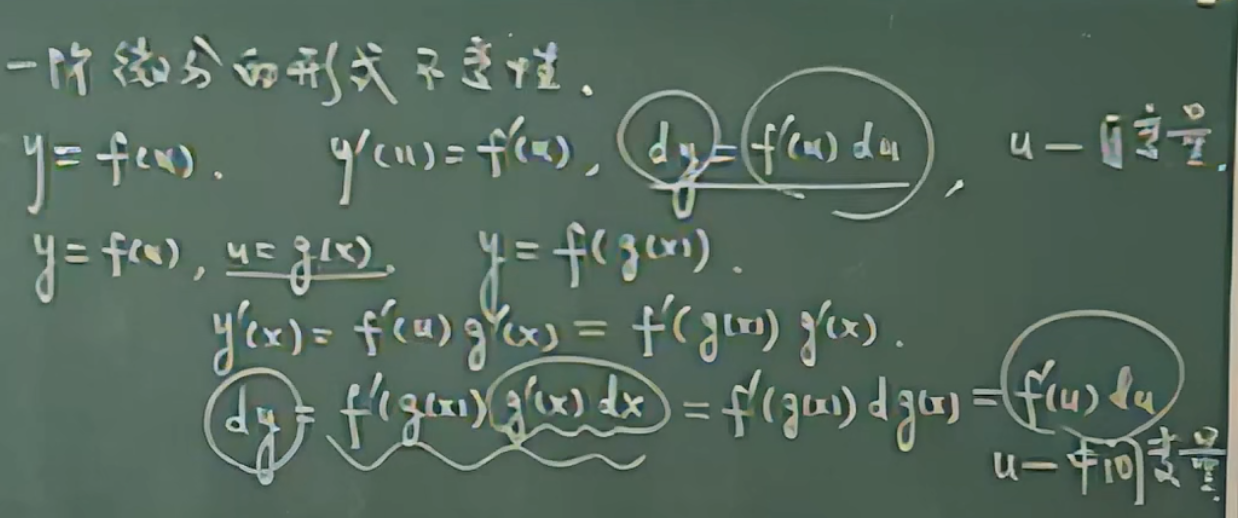 一阶微分的形式不变性.
y = f(u). y'(u) = f'(u), dy = f'(u) du, u — 自变量.
y = f(u), u = g(x). y = f(g(x)).
y'(x) = f'(u) g'(x) = f'(g(x)) g'(x).
dy = f'(g(x)) g'(x) dx = f'(g(x)) dg(x) = f'(u) du
u — 中间变量.